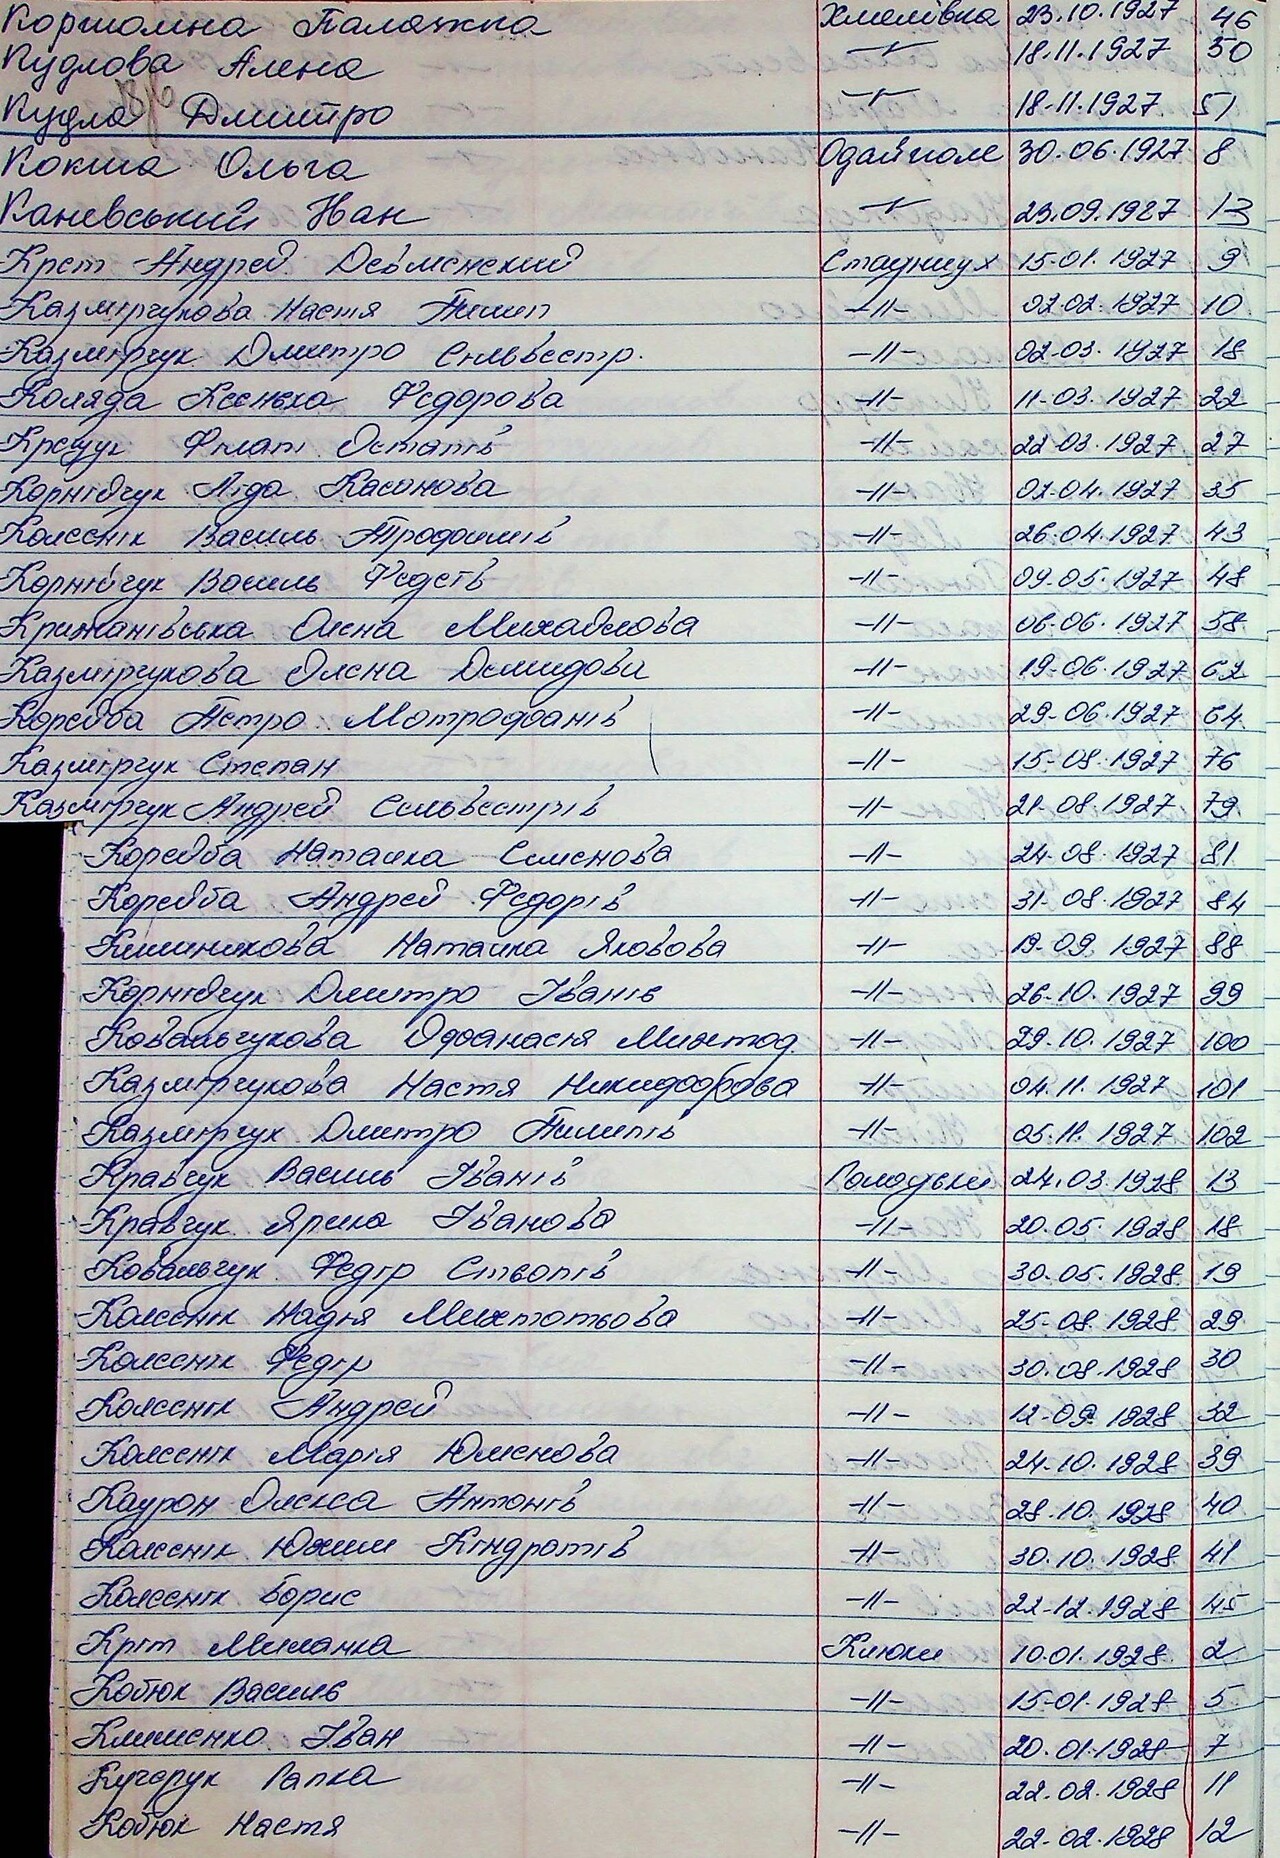 Коршомна Палажка Хмелівка 23.10.1927 46
Кудлова Алена -"- 18.11.1927 50
Кудла Дмитро -"- 18.11.1927 51
Кокша Ольга Одайполе 30.06.1927 8
Каневський Іван -"- 23.09.1927 13
Крет Андрей 15.01.1927 9
Казмірчукова Настя Пилип -"- 02.02.1927 10
Казмірчук Дмитро Сильвестр. -"- 02.03.1927 18
Коляда Ксеньха Федорова -"- 11.03.1927 22
Крещук Філат Остапів -"- 22.03.1927 27
Корнійчук Ліда Касонова -"- 02.04.1927 35
Колєснік Василь Трофимів -"- 26.04.1927 43
Корнійчук Василь Федеів -"- 09.05.1927 48
Крижанівська Олєна Михайлова -"- 06.06.1927 58
Казмірчукова Олєна Демидова -"- 19.06.1927 62
Корейба Петро Мотрофанів -"- 29.06.1927 64
Казмірчук Степан -"- 15-08.1927 76
Казмірчук Андрей Сильвестрів -"- 21-08.1927 79
Корейба Наталка Семенова -"- 24-08.1927 81
Корейба Андрей Федорів -"- 31-08.1927 84
Килиникова Наталка Яковова -"- 19.09.1927 88
Корнійчук Дмитро Іванів -"- 26.10.1927 99
Ковальчукова Офанасія Михтод. -"- 29.10.1927 100
Казмірчукова Настя Никифорова -"- 04.11.1927 101
Казмірчук Дмитро Пилипів -"- 05.11.1927 102
Кравчук Василь Іванів Голодьки 24.03.1928 13
Кравчук Ярина Іванова -"- 20.05.1928 18
Ковальчук Федір -"- 30.05.1928 19
Колєснік Надія -"- 25-08.1928 29
Колєснік Федір -"- 30.08.1928 30
Колєснік Андрей -"- 12-09.1928 32
Колєснік Марія Юменова -"- 24.10.1928 39
Каурон Олекса Антонів -"- 28.10.1928 40
Колєснік Юхим Кіндратів -"- 30.10.1928 41
Колєснік Борис -"- 22-12.1928 45
Кріт Миланка Клюки 10.01.1928 2
Кобюк Василь -"- 15-01.1928 5
Клименко Іван -"- 20.01.1928 7
Кучерук Гапка -"- 22.02.1928 11
Кобюк Настя -"- 22-02.1928 12